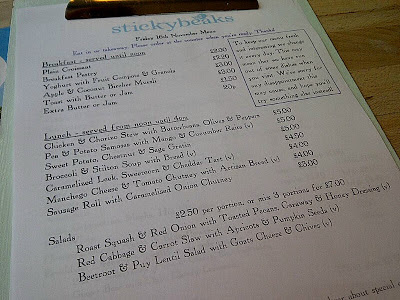 stickybeaks
Friday 16th November Menu
Eat in or takeaway. Please order at the counter when you're ready. Thanks!
Breakfast - served until noon
Plain Croissant
Breakfast Pastry
Yoghurt with Fruit Compote & Granola £3.00
Apple & Coconut Bircher Muesli £3.00
Toast with Butter or Jam £1.50
Extra Butter or Jam 20p
To keep our menu fresh
and interesting we change
it every day. This may
mean that we have run
out of some dishes when
you visit. We're sorry for
any disappointment this
may cause, and hope you'll
try something else instead!
Lunch - served from noon until 4pm
Chicken & Chorizo Stew with Butterbeans, Olives & Peppers £5.00
Pea & Potato Samosas with Mango & Cucumber Raita (v) £5.00
Sweet Potato, Chestnut & Sage Gratin £5.00
Broccoli & Stilton Soup with Bread (v) £4.50
Caramelized Leek, Sweetcorn & Cheddar Tart (v) £4.00
Manchego Cheese & Tomato Chutney with Artisan Bread (v) £4.00
Sausage Roll with Caramelised Onion Chutney £3.00
Salads £2.50 per portion, or mix 3 portions for £7.00
Roast Squash & Red Onion with Toasted Pecans, Caraway & Honey Dressing (v)
Red Cabbage & Carrot Slaw with Apricots & Pumpkin Seeds (v)
Beetroot & Puy Lentil Salad with Goats Cheese & Chives (v)
about special